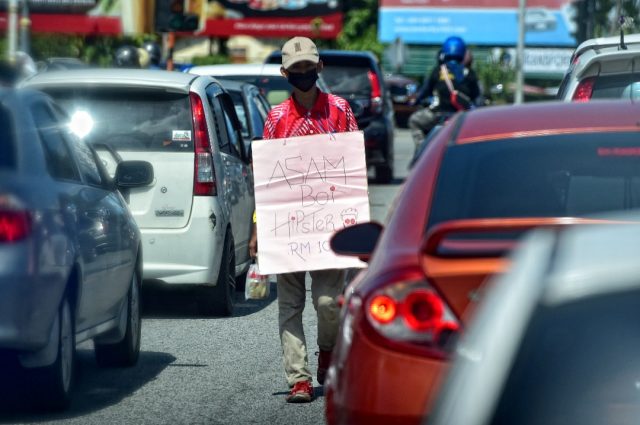 ASAM
BOi
HiPSTER
RM 10